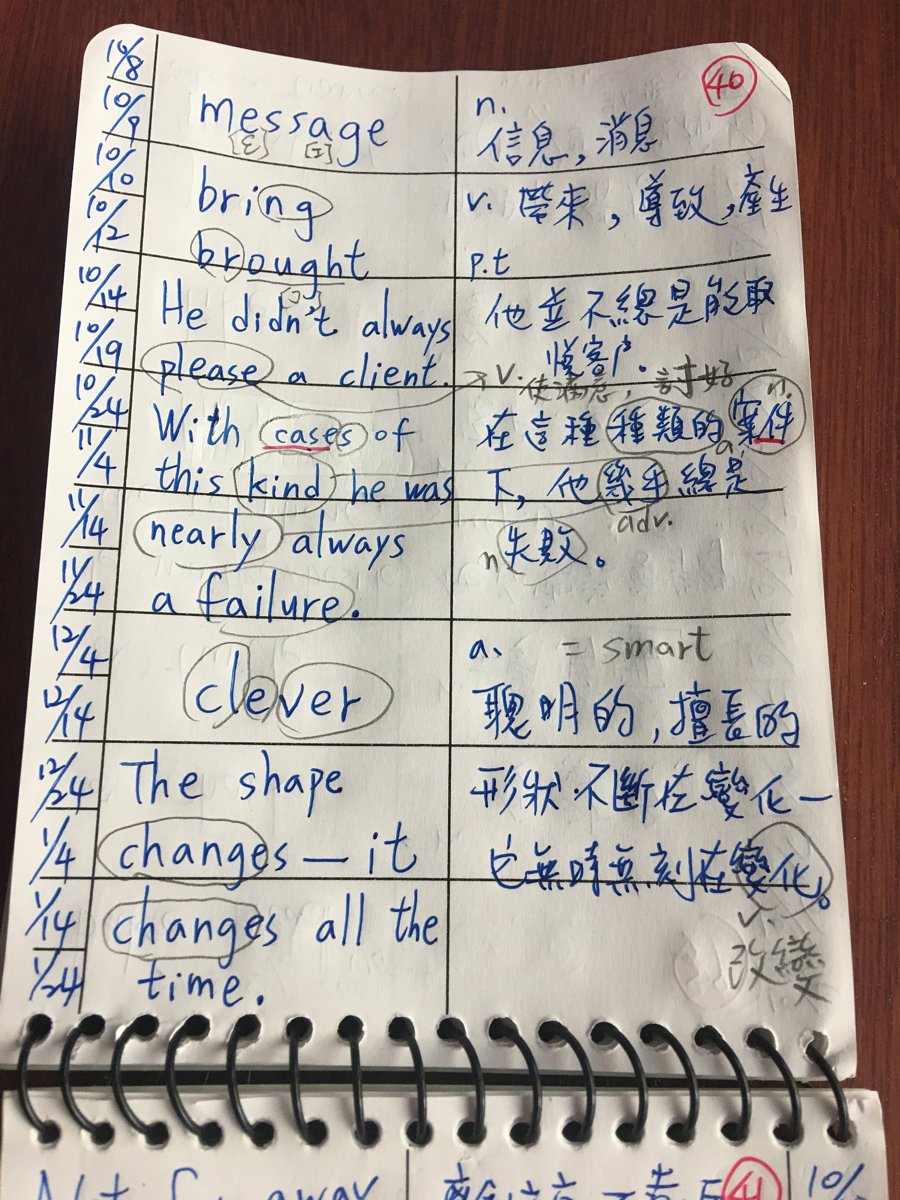 10/8
10/9
10/10
10/12
10/14
10/19
10/24
11/4
11/14
11/24
12/4
12/14
12/24
1/4
1/14
1/24
40
message
[ɛ] [ɪ]
n.
信息,消息
bring
v. 帶來,導致,產生
brought
p.t
[ɔ]
He didn't always
please a client.
他並不總是能取
悅客戶.
→ v. 使滿意,討好
With cases of
this kind he was
nearly always
a failure.
在這種種類的案件
n.
a.
下,他幾乎總是
adv.
n. 失敗。
clever
a. = smart
聰明的,擅長的
The shape
changes — it
changes all the
time.
形狀不斷在變化一
它無時無刻在變化。
v.
改變
away
41
10/